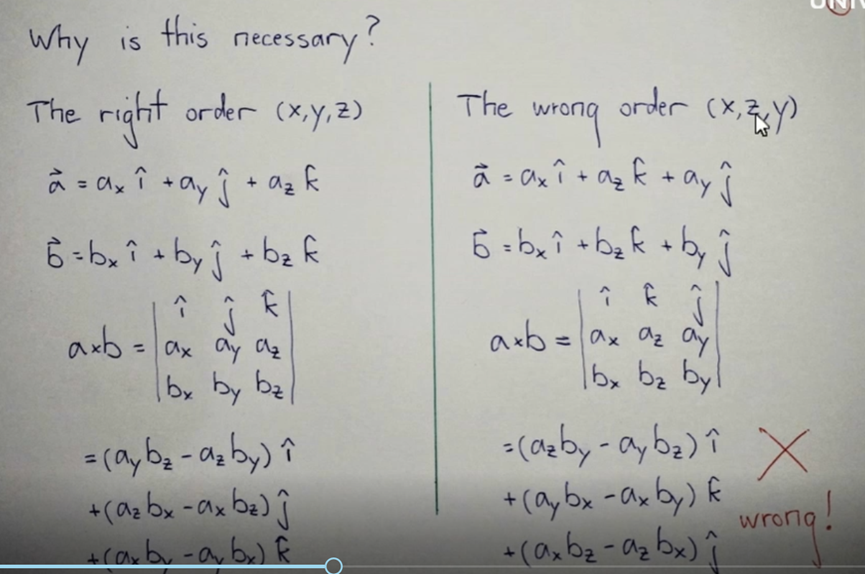 UNIV
Why is this necessary?
The right order (x,y,z)
a⃗ = aₓ î + a_y ĵ + a_z k̂
b⃗ = bₓ î + b_y ĵ + b_z k̂
a×b = | î ĵ k̂ |
| aₓ a_y a_z |
| bₓ b_y b_z |
= (a_y b_z - a_z b_y) î
+ (a_z bₓ - aₓ b_z) ĵ
+ (aₓ b_y - a_y bₓ) k̂
The wrong order (x,z,y)
a⃗ = aₓ î + a_z k̂ + a_y ĵ
b⃗ = bₓ î + b_z k̂ + b_y ĵ
a×b = | î k̂ ĵ |
| aₓ a_z a_y |
| bₓ b_z b_y |
= (a_z b_y - a_y b_z) î
+ (a_y bₓ - aₓ b_y) k̂
+ (aₓ b_z - a_z bₓ) ĵ
wrong!